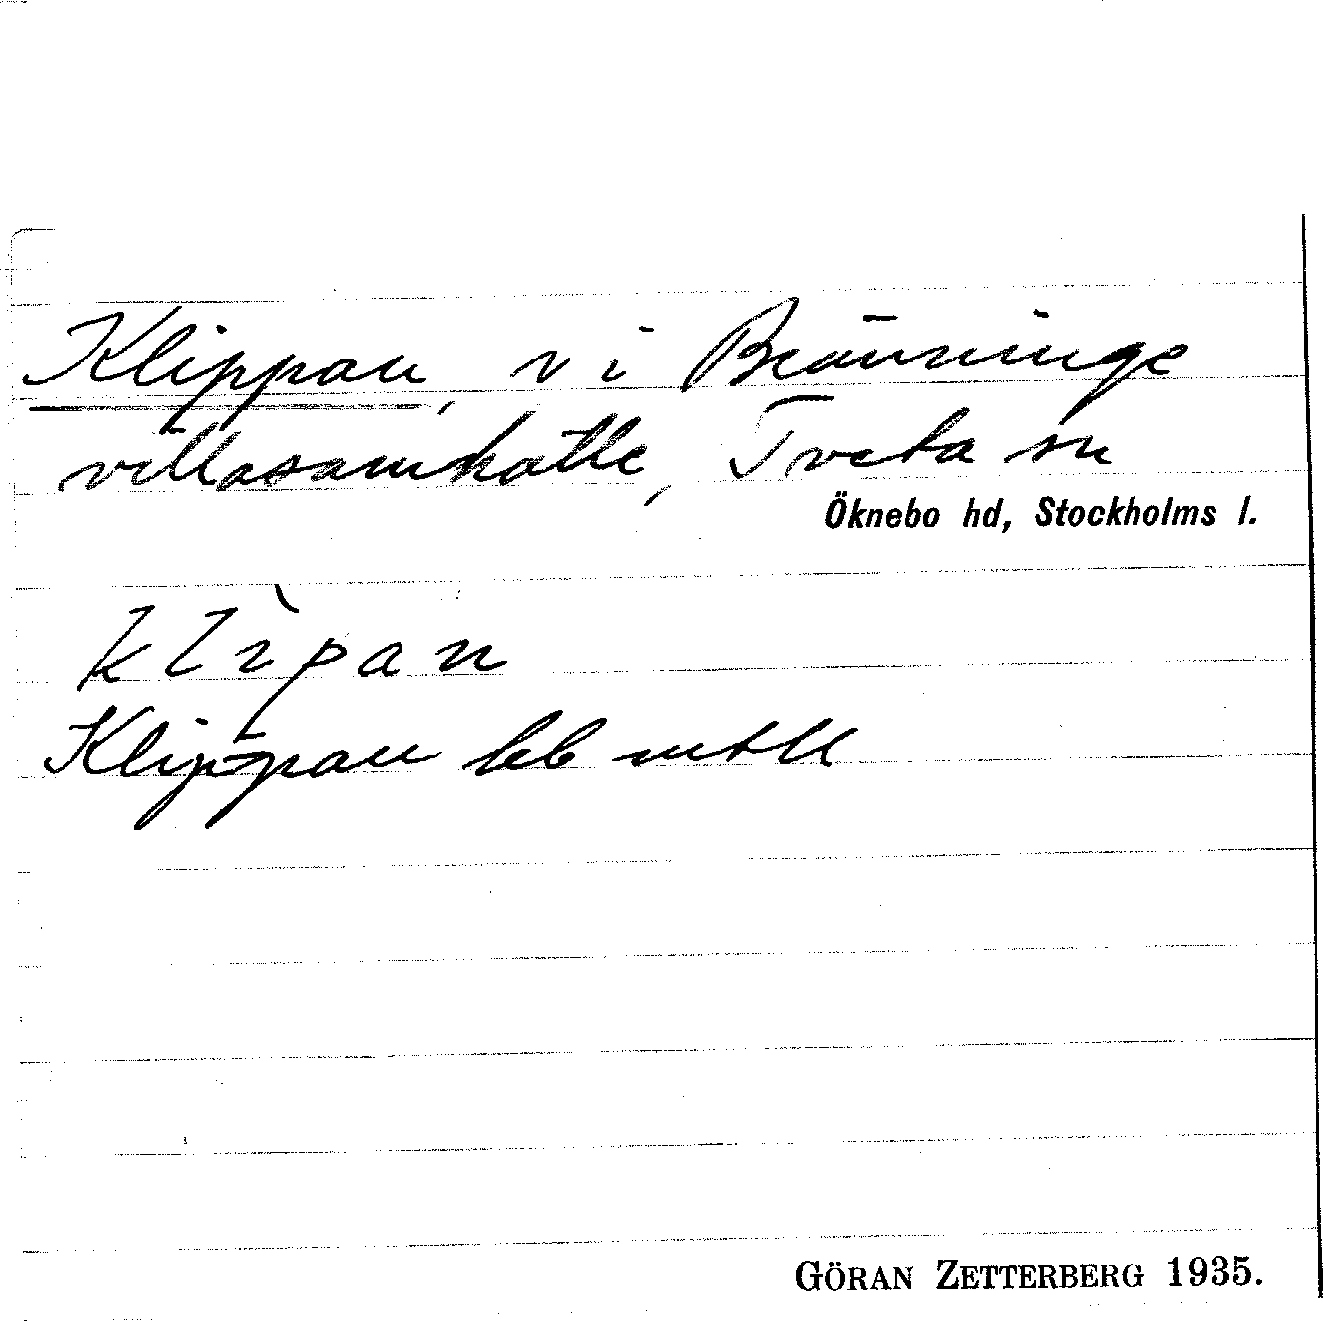 Klippan, v i Bränninge
villasamhälle, Tveta sn
Öknebo hd, Stockholms l.
klìpan
Klippan lcb mtll
GÖRAN ZETTERBERG 1935.